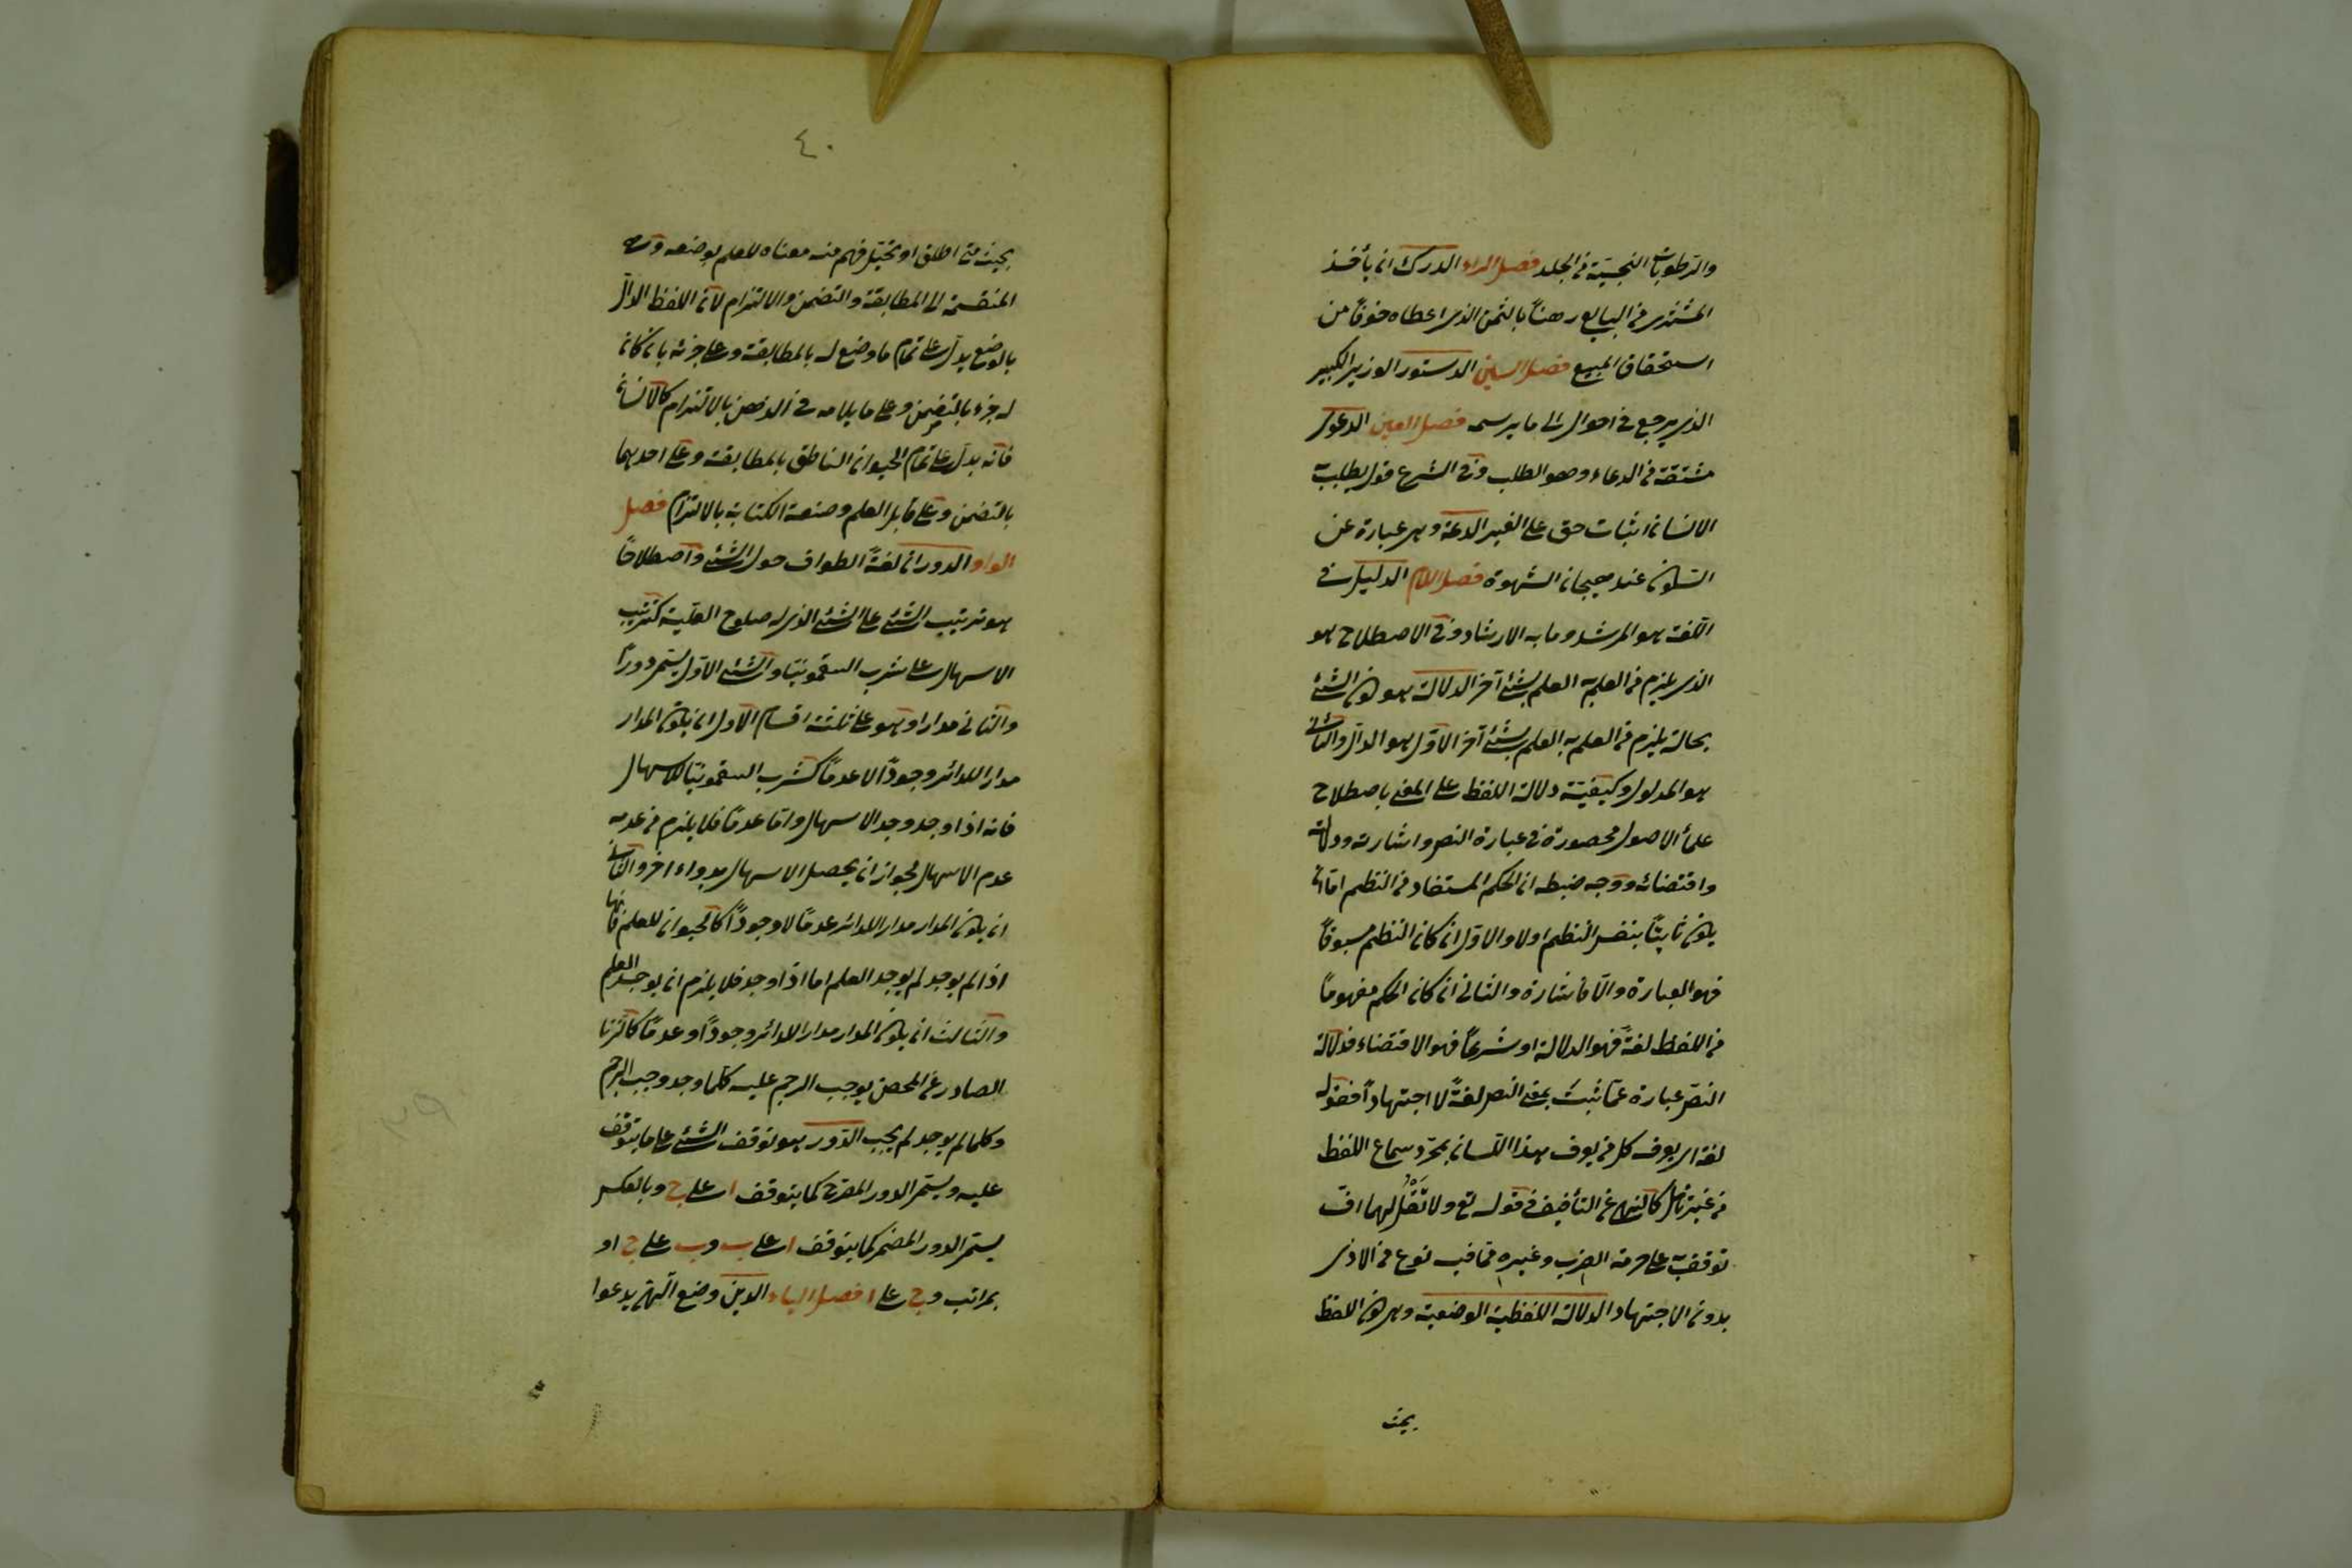 والرطوبات النجسيّة في الجلد فصل الراء الدرك ان يأخذ
المشتري من البايع رهناً بالثمن الذي اعطاه خوفاً من
استحقاق المبيع فصل السين الدستور الوزير الكبير
الذي يرجع في احوال الى ما يرسمه فصل العين الدعوى
مشتقة من الدعاء وهو الطلب وفي الشرع قول يطلب به
الانسان اثبات حق على الغير الدعة وهي عبارة عن
السكون عند هيجان الشهوة فصل اللام الدليل في
اللغة هو المرشد وما به الارشاد وفي الاصطلاح هو
الذي يلزم من العلم به العلم بشئ آخر الدلالة هو كون الشئ
بحالة يلزم من العلم به العلم بشئ آخر الاوّل هو الدال والثاني
هو المدلول وكيفيّة دلالة اللفظ على المعنى باصطلاح
علماً الاصول محصورة في عبارة النص واشارته ودلالته
واقتضائه ووجه ضبطه ان الحكم المستفاد من النظم امّا ان
يكون ثابتاً بنفس النظم اولا والاوّل ان كان النظم مسوقاً
فهو العبارة والّا فاشارة والثاني ان كان الحكم مفهوماً
من اللفظ لغةً فهو الدلالة او شرعاً فهو الاقتضاء فدلالة
النصّ عبارة عمّا ثبت بمعنى النص لغةً لا اجتهاداً فقوله
لغة اي يعرف كل من يعرف هذا اللسان بمجرّد سماع اللفظ
من غير تأمل كالنهي عن التأفيف في قوله تع ولا تَقُلْ لهما افّ
توقف به على حرمة الضرب وغيره ممّا فيه نوع من الاذى
بدون الاجتهاد الدلالة اللفظية الوضعية وهي كون اللفظ
بحيث
٤٠
بحيث متى اطلق او تخيّل فهم منه معناه للعلم بوضعه وهي
المنقسمة الى المطابقة والتضمن والالتزام لانّ اللفظ الدالّ
بالوضع يدلّ على تمام ما وضع له بالمطابقة وعلى جزئه بان كان
له جزء بالتضمن وعلى ما يلازمه في الذهن بالالتزام كالانسان
فانّه يدلّ على تمام الحيوان الناطق بالمطابقة وعلى احدهما
بالتضمن وعلى قابل العلم وصنعة الكتابة بالالتزام فصل
الواو الدوران لغةً الطواف حول الشئ واصطلاحاً
هو ترتيب الشئ على الشئ الذي له صلوح العليّة كترتيب
الاسهال على شرب السقمونيّا والشئ الاوّل يسمّى دوراً
والثاني مدارا وهو على ثلثة اقسام الاول ان يكون المدار
مدارا للدائر وجوداً لا عدماً كشرب السقمونيّا للاسهال
فانه اذا وجد وجد الاسهال وامّا عدماً فلا يلزم من عدمه
عدم الاسهال لجواز ان يحصل الاسهال بدواء اخر والثاني
ان يكون المدار مدارا للدائر عدماً لا وجوداً كالحيوان للعلم فانها
اذا لم يوجد لم يوجد العلم اما اذا وجد فلا يلزم ان يوجد العلم
والثالث ان يكون المدار مدارا للدائر وجوداً وعدماً كالزنا
الصادر عن المحصن يوجب الرجم عليه كلّما وجد وجب الرجم
وكلما لم يوجد لم يجب الدّور هو توقف الشئ على ما يتوقف
عليه ويسمّى الدور المصرح كما يتوقف ا على ب وبالعكس
يسمّى الدور المضمر كما يتوقف ا على ب وب على ج او
بمراتب وج على ا فصل الياء الدين وضع آلهيّ يدعوا